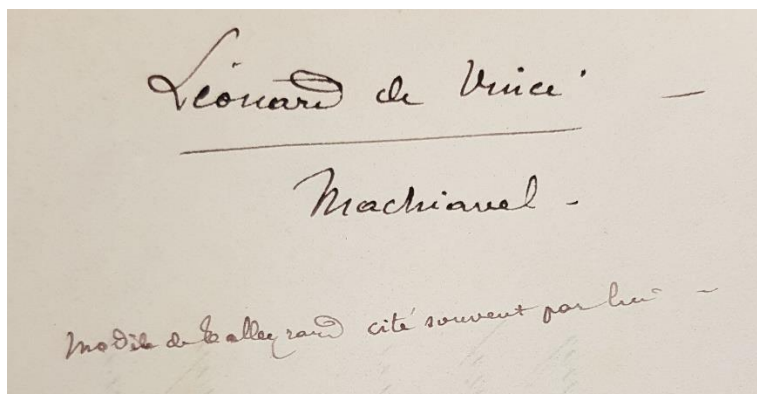 Léonard de Vinci —
Machiavel -
Modèle de Talleyrand cité souvent par lui -